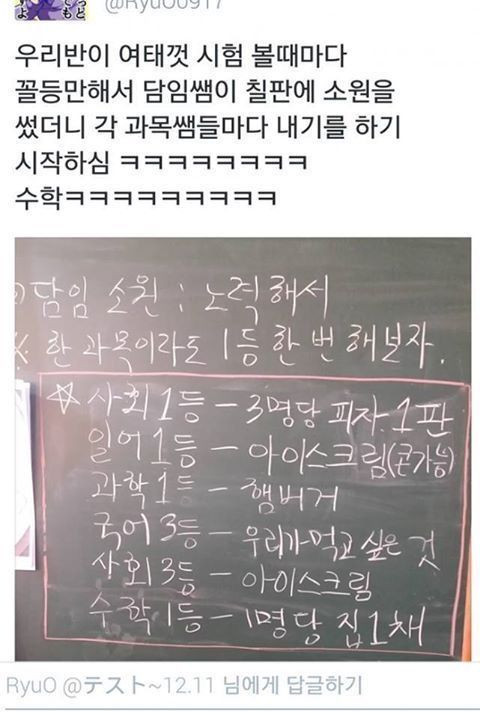 @RyuO0917
우리반이 여태껏 시험 볼때마다
꼴등만해서 담임쌤이 칠판에 소원을
썼더니 각 과목쌤들마다 내기를 하기
시작하심 ㅋㅋㅋㅋㅋㅋㅋㅋ
수학ㅋㅋㅋㅋㅋㅋㅋㅋㅋ
담임 소원 : 노력해서
※ 한 과목이라도 1등 한 번 해보자.
☆ 사회 1등 - 3명당 피자 1판
일어 1등 - 아이스크림(콘가능)
과학 1등 - 햄버거
국어 3등 - 우리가 먹고 싶은 것
사회 3등 - 아이스크림
수학 1등 - 1명당 집 1채
RyuO @テスト~12.11 님에게 답글하기